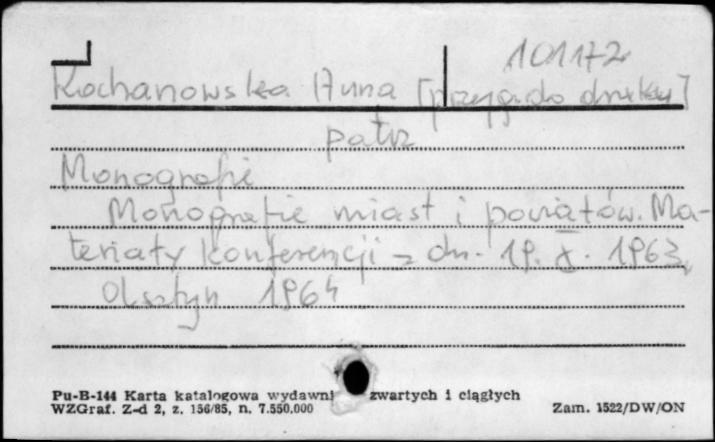 101172
Kochanowska Anna [przyg. do druku]
patrz
Monografie
Monografie miast i powiatów. Ma-
teriały konferencji z dn. 19. X. 1963,
Olsztyn 1964
Pu-B-144 Karta katalogowa wydawni zwartych i ciągłych
WZGraf. Z-d 2, z. 156/85, n. 7.550.000 Zam. 1522/DW/ON